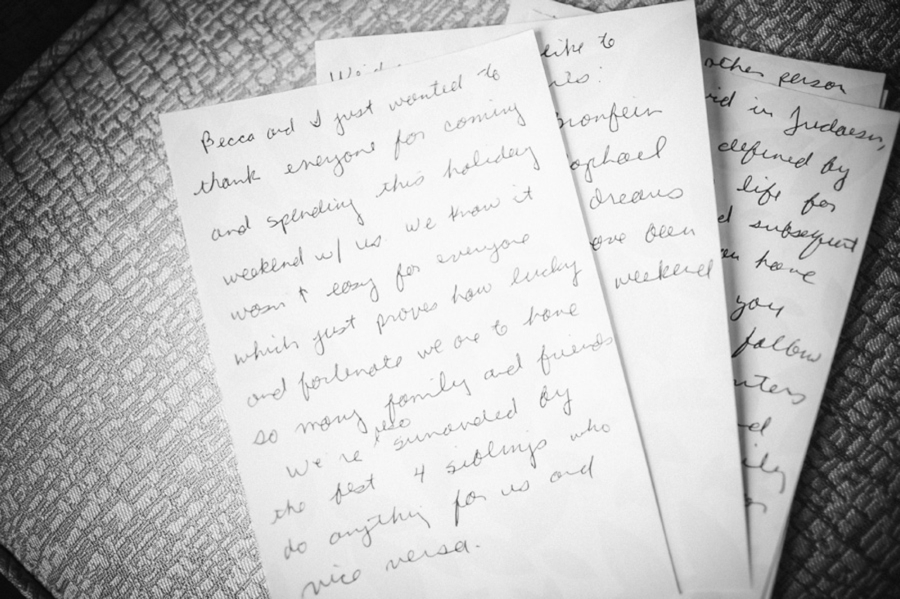 Becca and I just wanted to
thank everyone for coming
and spending this holiday
weekend w/ us. We know it
wasn't easy for everyone
which just proves how lucky
and fortunate we are to have
so many family and friends
We're also surrounded by
the best 4 siblings who
do anything for us and
vice versa.
like to
onfein
aphael
dreams
ave been
weekend
other person
in Judaism,
defined by
life for
subsequent
have
you
follow